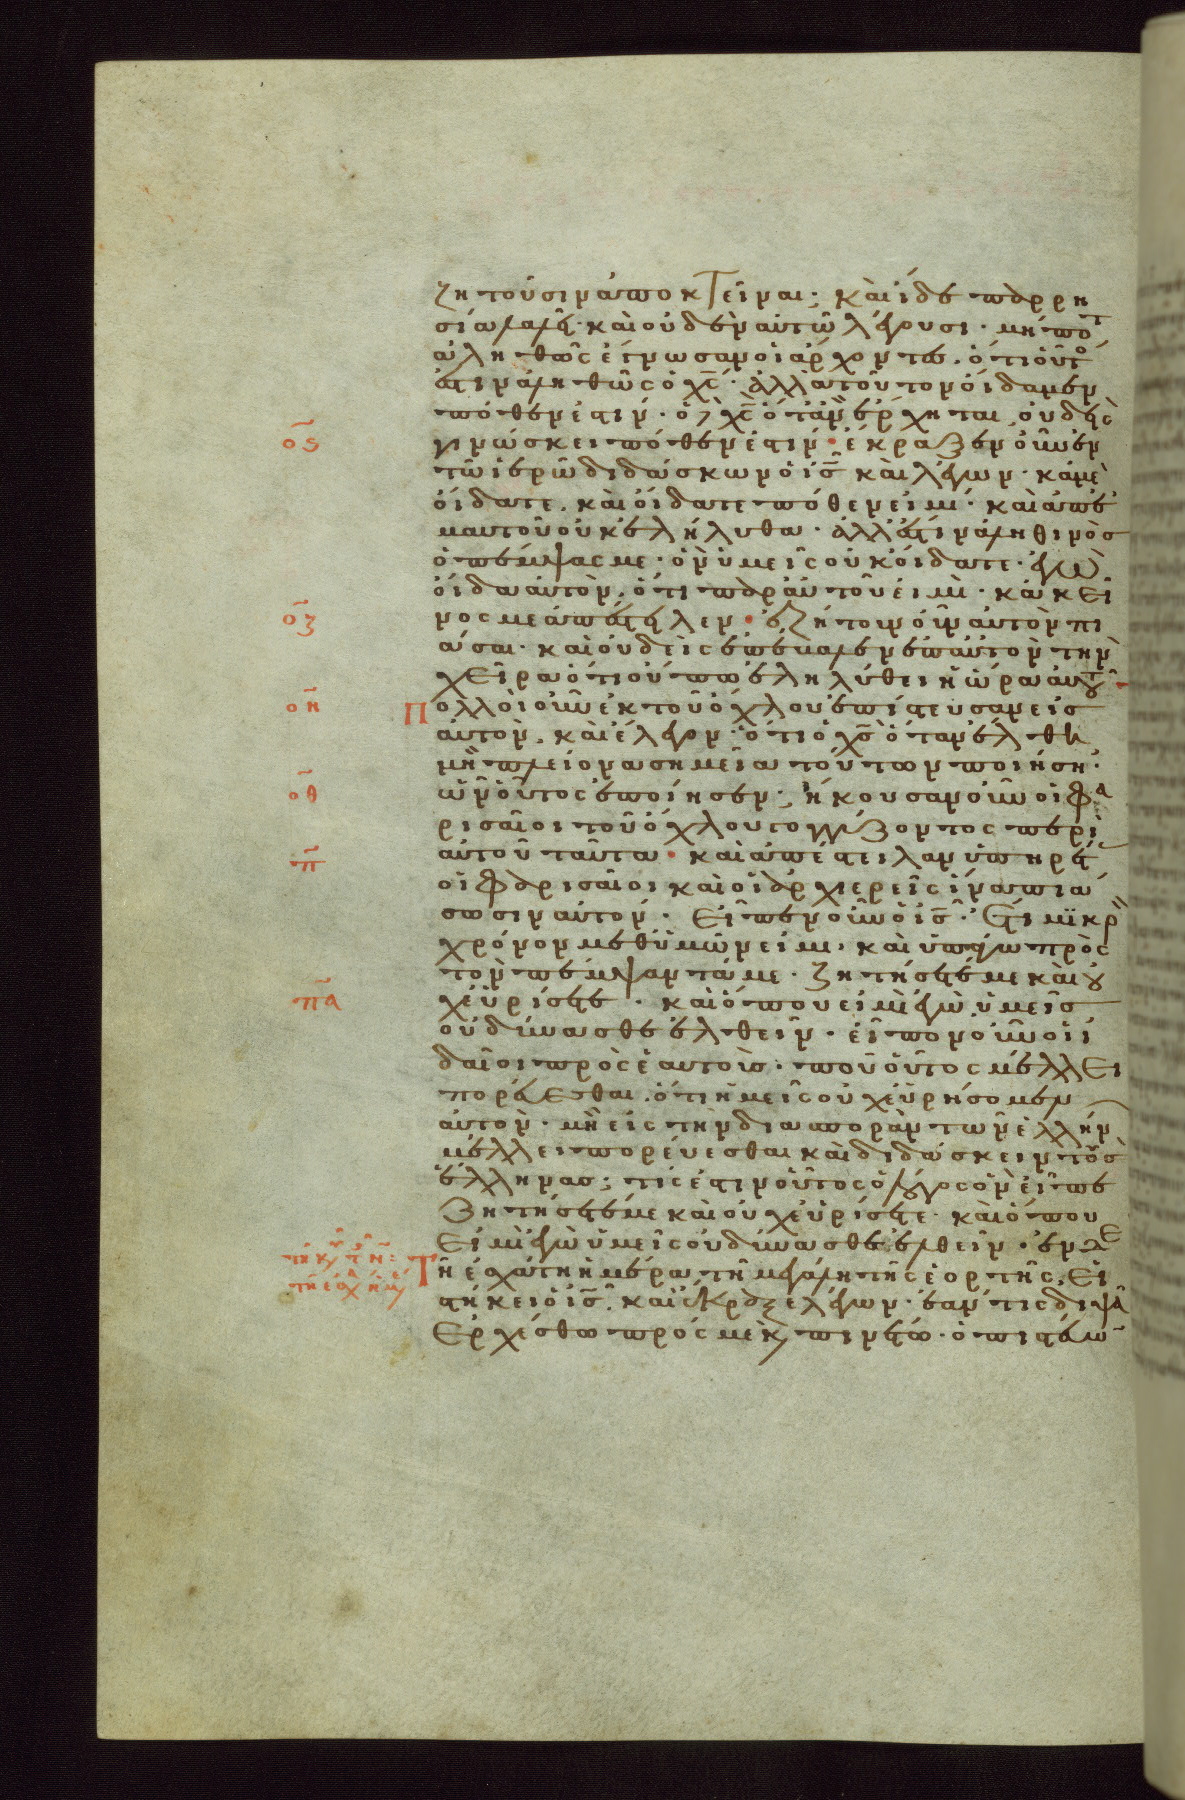 ζητοῦσιν ἀποκτεῖναι; καὶ ἴδε παρρη
σία λαλεῖ· καὶ οὐδὲν αὐτῶ λέγουσι· μήποτ
ἀληθῶς ἔγνωσαν οἱ ἄρχοντες, ὅτι οὗτο
ἐστιν ἀληθῶς ὁ χς̅· ἀλλὰ τοῦτον οἴδαμεν
πόθεν ἐστίν· ὁ δὲ χς̅ ὅταν ἔρχηται, οὐδεὶς
ος̅ γινώσκει πόθεν ἐστίν· ἔκραξεν οὖν ἐν
τῶ ἱερῶ διδάσκων ὁ ις̅ καὶ λέγων· κἀμὲ
οἴδατε, καὶ οἴδατε πόθεν εἰμί· καὶ ἀπ' ἐ
μαυτοῦ οὐκ ἐλήλυθα· ἀλλ' ἔστιν ἀληθινὸς
ὁ πέμψας με· ὃν ὑμεῖς οὐκ οἴδατε· ἐγὼ
οἶδα αὐτὸν, ὅτι παρ' αὐτοῦ εἰμὶ· κἀκεῖ
οζ̅ νος με ἀπέστειλεν· ἐζήτουν οὖν αὐτὸν πι
άσαι· καὶ οὐδεὶς ἐπέβαλεν ἐπ' αὐτὸν τὴν
χεῖρα ὅτι οὔπω ἐληλύθει ἡ ὥρα αὐτοῦ·
οη̅ Πολλοὶ οὖν ἐκ τοῦ ὄχλου ἐπίστευσαν εἰς
αὐτον, καὶ ἔλεγον· ὅτι ὁ χς̅ ὅταν ἔλθη
μὴ πλείονα σημεῖα τούτων ποιήση·
οθ̅ ὧν οὗτος ἐποίησεν; ἤκουσαν οὖν οἱ φα
ρισαῖοι τοῦ ὄχλου τογγύζοντος περὶ
π̅ αὐτοῦ ταῦτα· καὶ ἀπέστειλαν ὑπηρέτ
οἱ φαρισαῖοι καὶ οἱ ἀρχιερεῖς ἵνα πιά
σωσιν αὐτόν· Εἶπεν οὖν ὁ ις̅· Ἔτι μικρ
χρόνον μεθ' ὑμῶν εἰμι, καὶ ὑπάγω πρὸς
τὸν πέμψαντά με· Ζητήσετέ με καὶ οὐ
πα̅ χ' εὑρήσετε· καὶ ὅπου εἰμὶ ἐγὼ, ὑμεῖς
οὐ δύνασθε ἐλθεῖν· εἶπον οὖν οἱ ἰου
δαῖοι πρὸς ἑαυτοὺς· ποῦ οὗτος μέλλει
πορεύεσθαι, ὅτι ἡμεῖς οὐχ' εὑρήσομεν
αὐτον· μὴ εἰς τὴν διασπορὰν τῶν ἑλλήν
μέλλει πορεύεσθαι καὶ διδάσκειν τοὺς
ἕλληνας; τίς ἐστιν οὗτος ὁ λόγος ὃν εἶπε
Ζητήσετέ με καὶ οὐχ' εὑρήσετε· καὶ ὅπου
εἰμὶ ἐγὼ ὑμεῖς οὐ δύνασθε ἐλθεῖν· ἐν δὲ
Τῆ ἐσχάτη ἡμέρα τῆ μεγάλη τῆς ἑορτῆς, εἱ
στήκει ὁ ις̅, καὶ ἔκραξε λέγων· ἐάν τις διψᾶ
ἐρχέσθω πρός με κ̀ πινέτω· ὁ πιστεύω